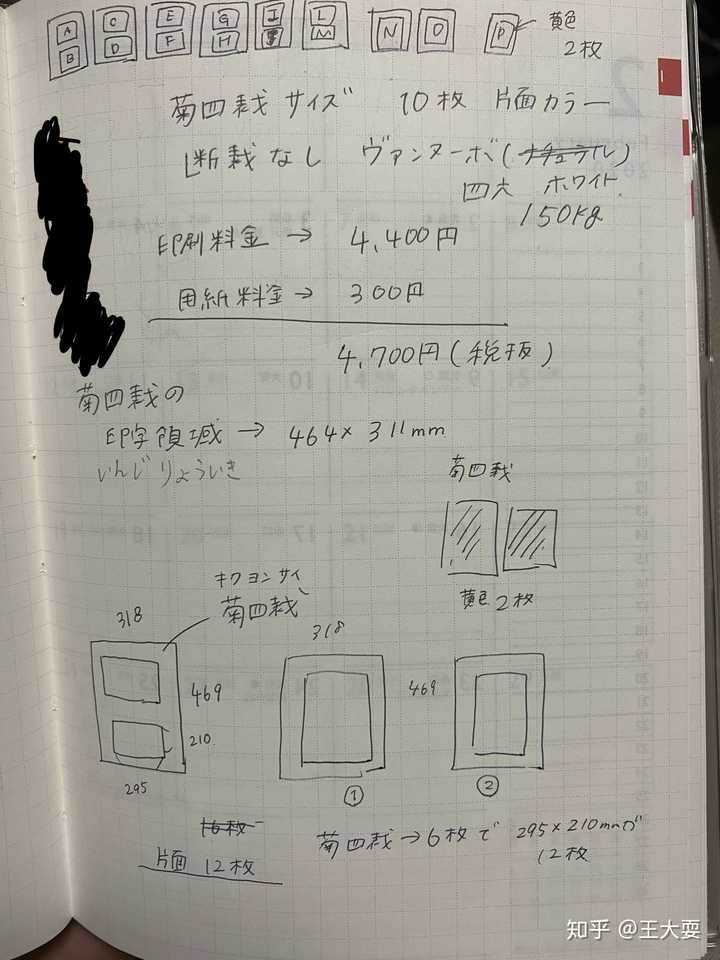 A C E G I L N O P 黄色
B D F H J M 2枚
菊四裁サイズ 10枚 片面カラー
断裁なし ヴァンヌーボ(ナチュラル)
四六 ホワイト
150kg
印刷料金 → 4,400円
用紙料金→ 300円
4,700円(税抜)
菊四裁の
印字領域 → 464×311mm
いんじりょういき
菊四裁
黄色2枚
キクヨンサイ
318 菊四裁 318
469 469
210
295 ① ②
16枚
片面 12枚
菊四裁→6枚で 295×210mmが
12枚
知乎 @王大耍